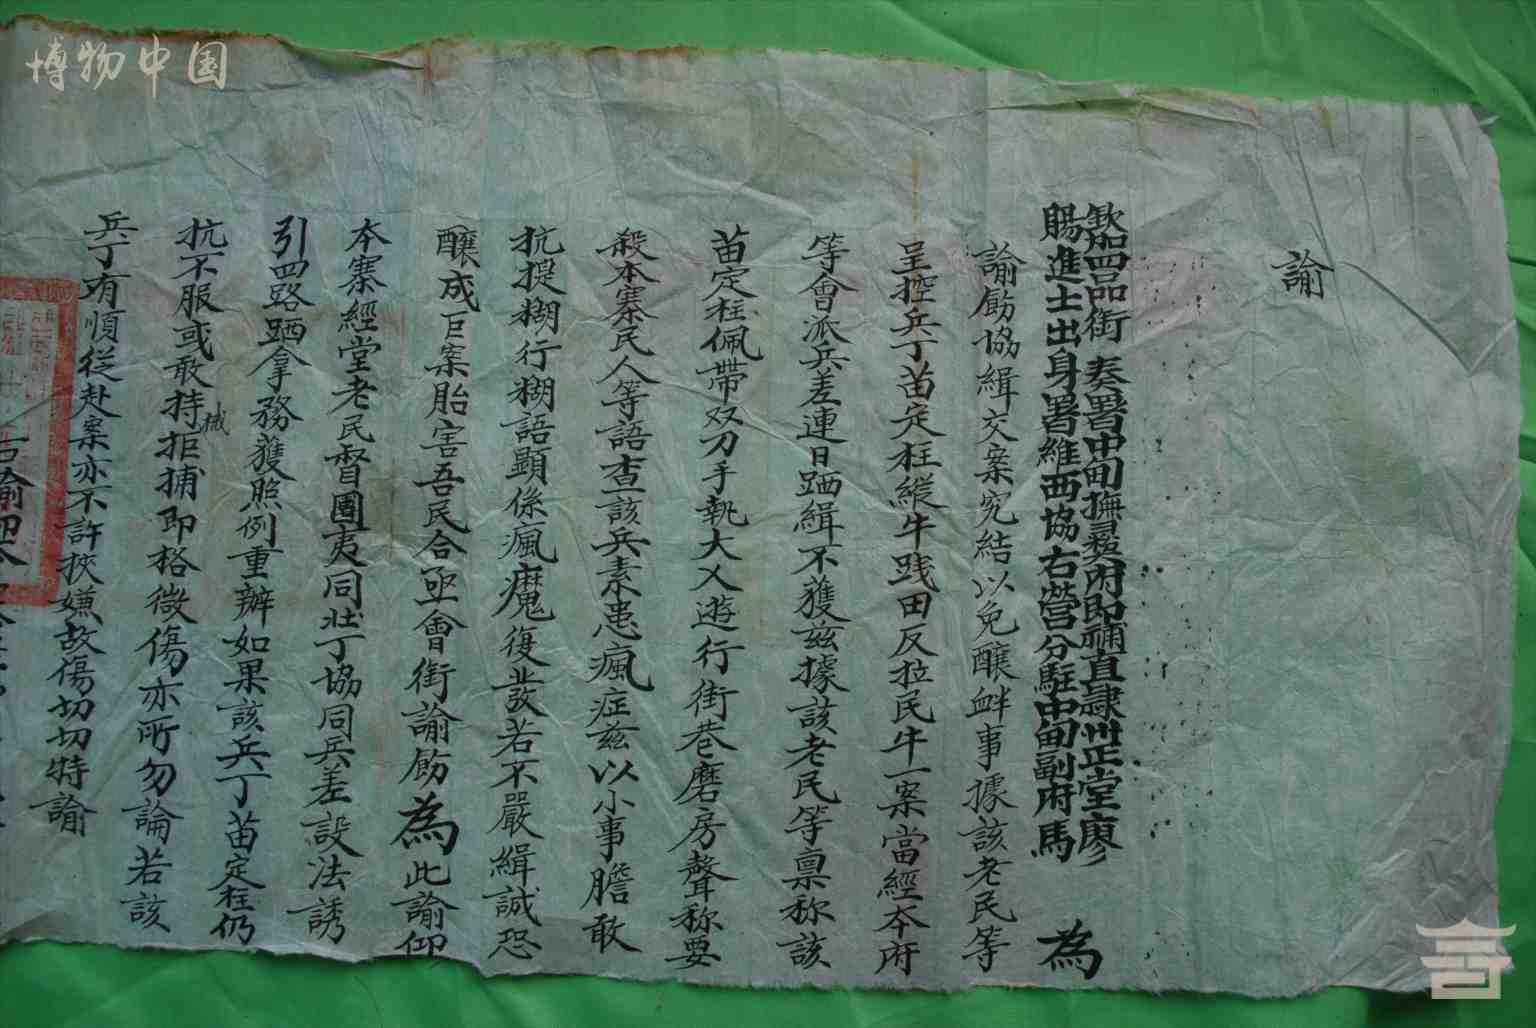 諭
欽加四品銜 奏署中甸撫彝府即補直隸州正堂廖
賜進士出身署維西協右營分駐中甸副府馬 為
諭飭協緝交案究結以免釀衅事據該老民等
呈控兵丁苗定枉縱牛践田反拉民牛一案當經本府
等會派兵差連日跴緝不獲兹據該老民等禀称該
苗定枉佩帶双刀手執大乂遊行街巷磨房聲称要
殺本寨民人等語查該兵素患瘋症兹以小事膽敢
抗提糊行糊語顕係瘋魔復發若不嚴緝誠恐
釀成巨案胎害吾民合亟會銜諭飭為此諭仰
本寨經堂老民督團夷同壮丁協同兵差設法誘
引四路跴拿務獲照例重辦如果該兵丁苗定枉仍
抗不服或敢持械拒捕即格微傷亦所勿論若該
兵丁有順従赴案亦不許挾嫌故傷切切特諭
右諭
博物中国